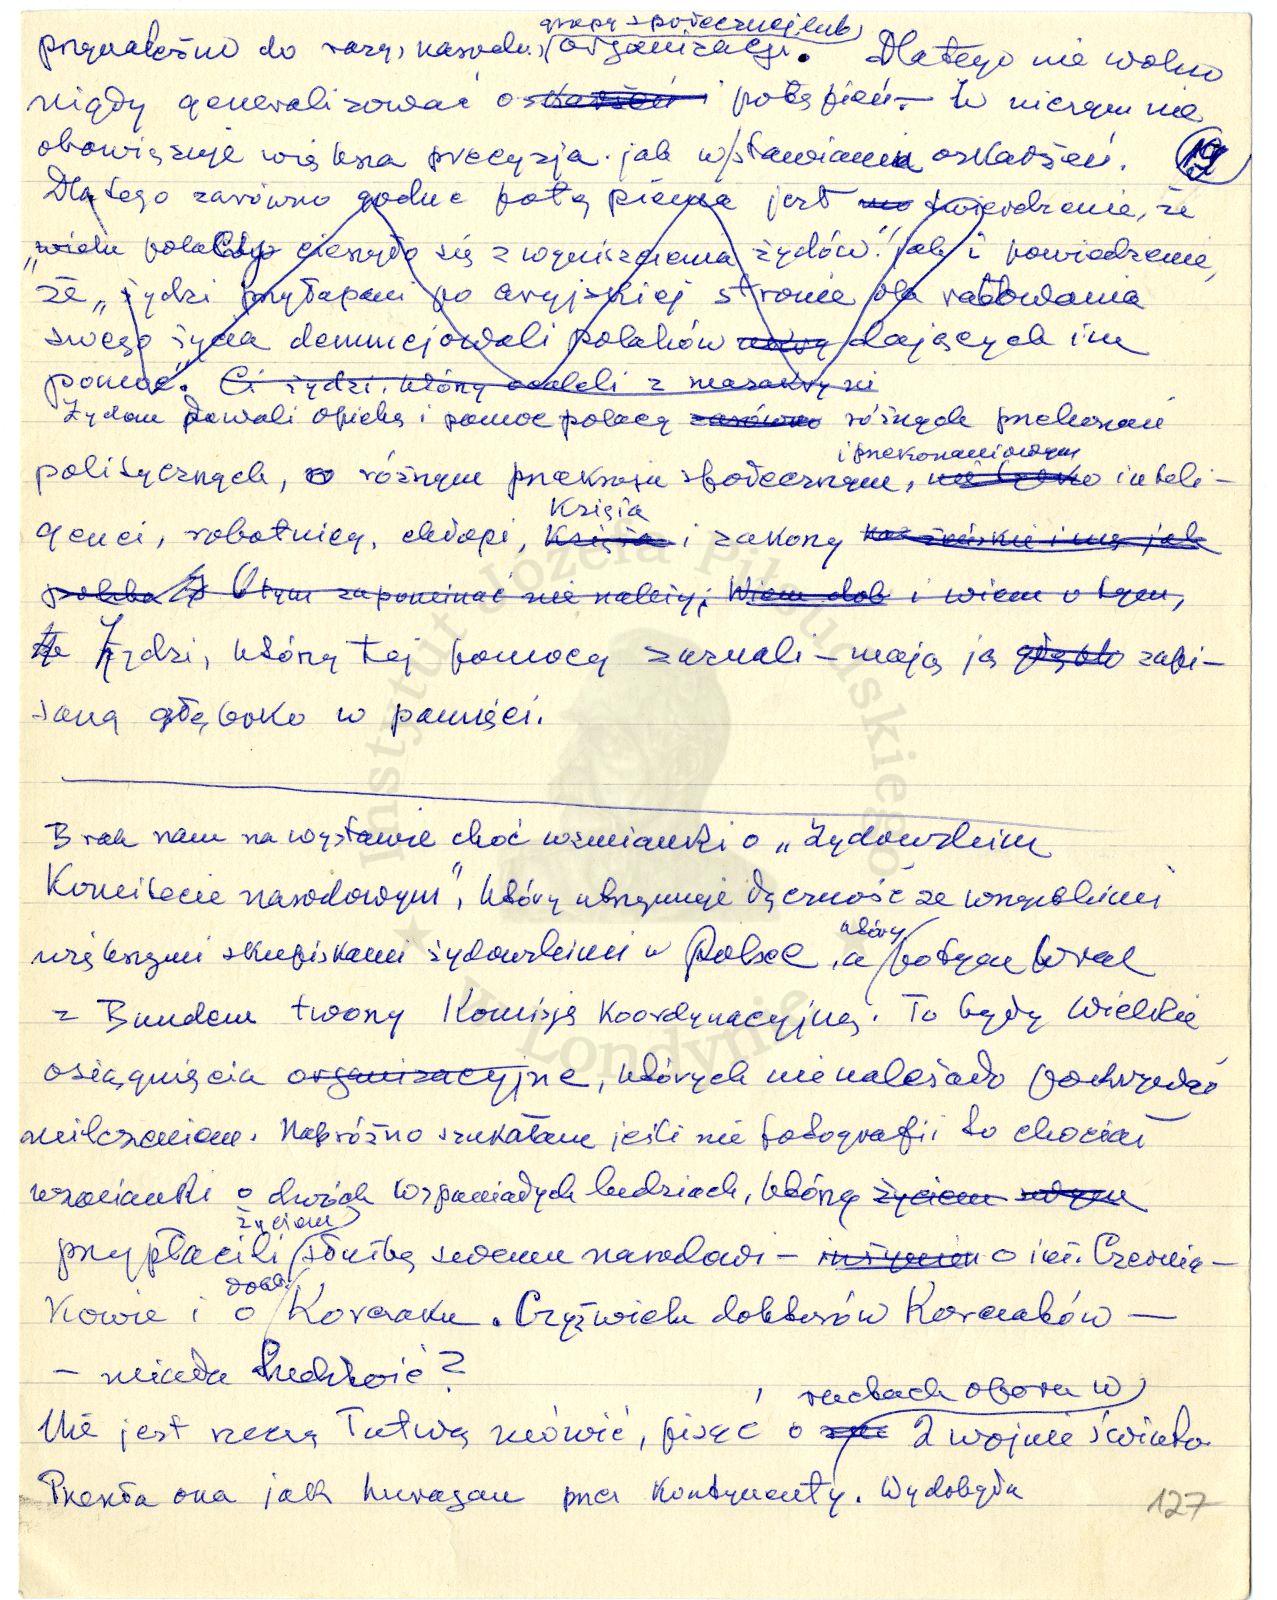 grupy społecznej lub
przynależno do rasy, narodu, organizacji. Dlatego nie wolno
nigdy generalizować oskarżeń i potępień – W niczym nie
obowiązuje większa precyzja jak w stawianiu oskarżeń. 19
Dlatego zarówno godne potępienia jest twierdzenie, że
„wielu polaków cieszyło się z wyniszczenia żydów" jak i powiedzenie,
że „żydzi przyłapani po aryjskiej stronie dla ratowania
swego życia denuncjowali polaków dających im
pomoc". Ci żydzi, którzy ocaleli z masakry ni
Żydom dawali opiekę i pomoc polacy zarówno różnych przekonań
i przekonaniowym
politycznych, o różnym przekroju społecznym, nie tylko inteli-
genci, robotnicy, chłopi, Księża
Księża i zakony
O tym zapominać nie należy; Wiem dob i wiem o tym,
że Żydzi, którzy tej pomocy zaznali – mają ją głęboko zapi-
saną głęboko w pamięci.
Brak nam na wystawie choć wzmianki o „Żydowskim
Komitecie narodowym", który utrzymuje łączność ze wszystkimi
większymi skupiskami żydowskimi w Polsce, a który potym wraz
z Bundem tworzy Komisję Koordynacyjną. To były wielkie
osiągnięcia organizacyjne, których nie należało pokrywać
milczeniem. Napróżno szukałam jeśli nie fotografii to chociaż
wzmianki o dwóch wspaniałych ludziach, którzy życiem
życiem
przypłacili służbę swemu narodowi – inżynier o inż. Czernia-
kowie i o dokt. Korczaku. Czyż wielu doktorów Korczaków –
– miała ludzkość?
ruchach oporu w
Nie jest rzeczą łatwą mówić, pisać o 2 wojnie świato
Przeszła ona jak huragan przez kontynenty. Wydobyła
127
Instytut Józefa Piłsudskiego
w Londynie